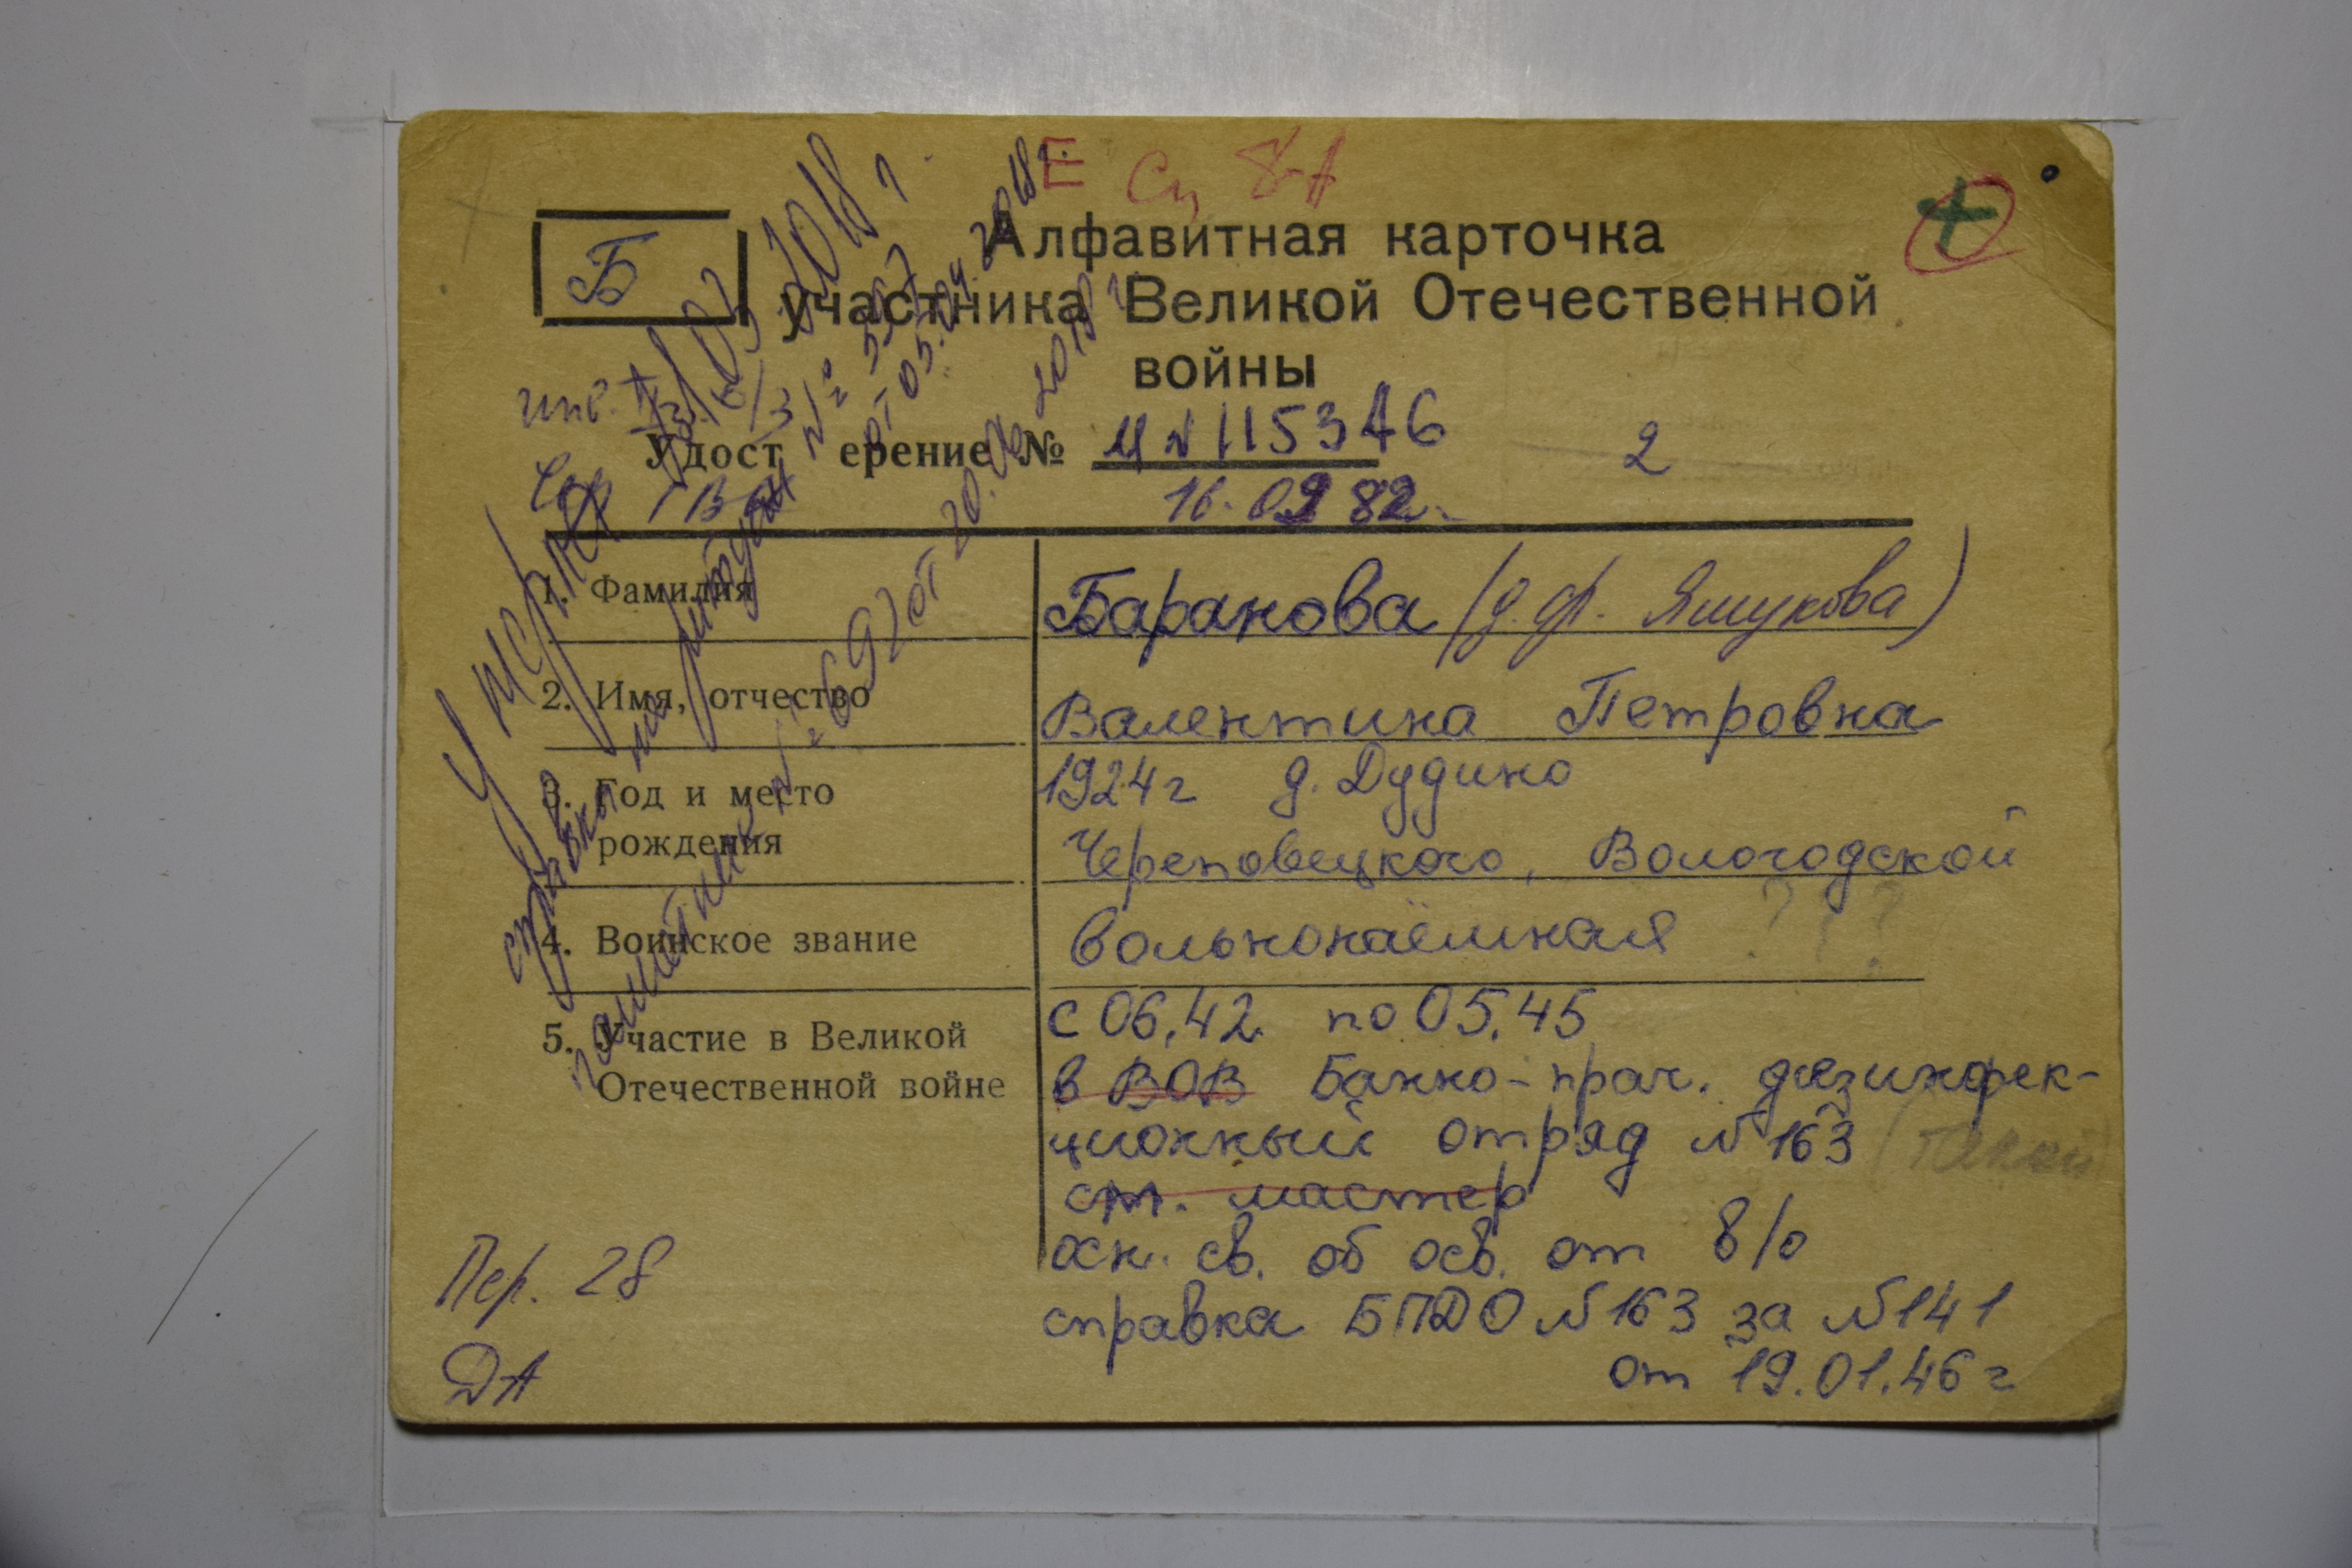 Е Сп 8-А
Б
Алфавитная карточка
участника Великой Отечественной
войны
Удост ерение №
16. 09 82г.
2
1. Фамилия
Баранова (д. ф. Яшукова)
2. Имя, отчество
Валентина Петровна
3. Год и место
рождения
1924г д. Дудино
Череповецкого, Вологодской
4. Воинское звание
вольнонаёмная ? ? ?
5. Участие в Великой
Отечественной войне
с 06.42. по 05.45
в ВОВ Банно-прач. дезинфек-
ционный отряд №163
ст. мастер
осн. св. об осв. от в/о
справка БПДО №163 за №141
от 19.01.46г
Пер. 28
ДА
умерла
справка на ритуал № 557
от 05.04.2018г.
памятник № 697 от 20.06.2018г.